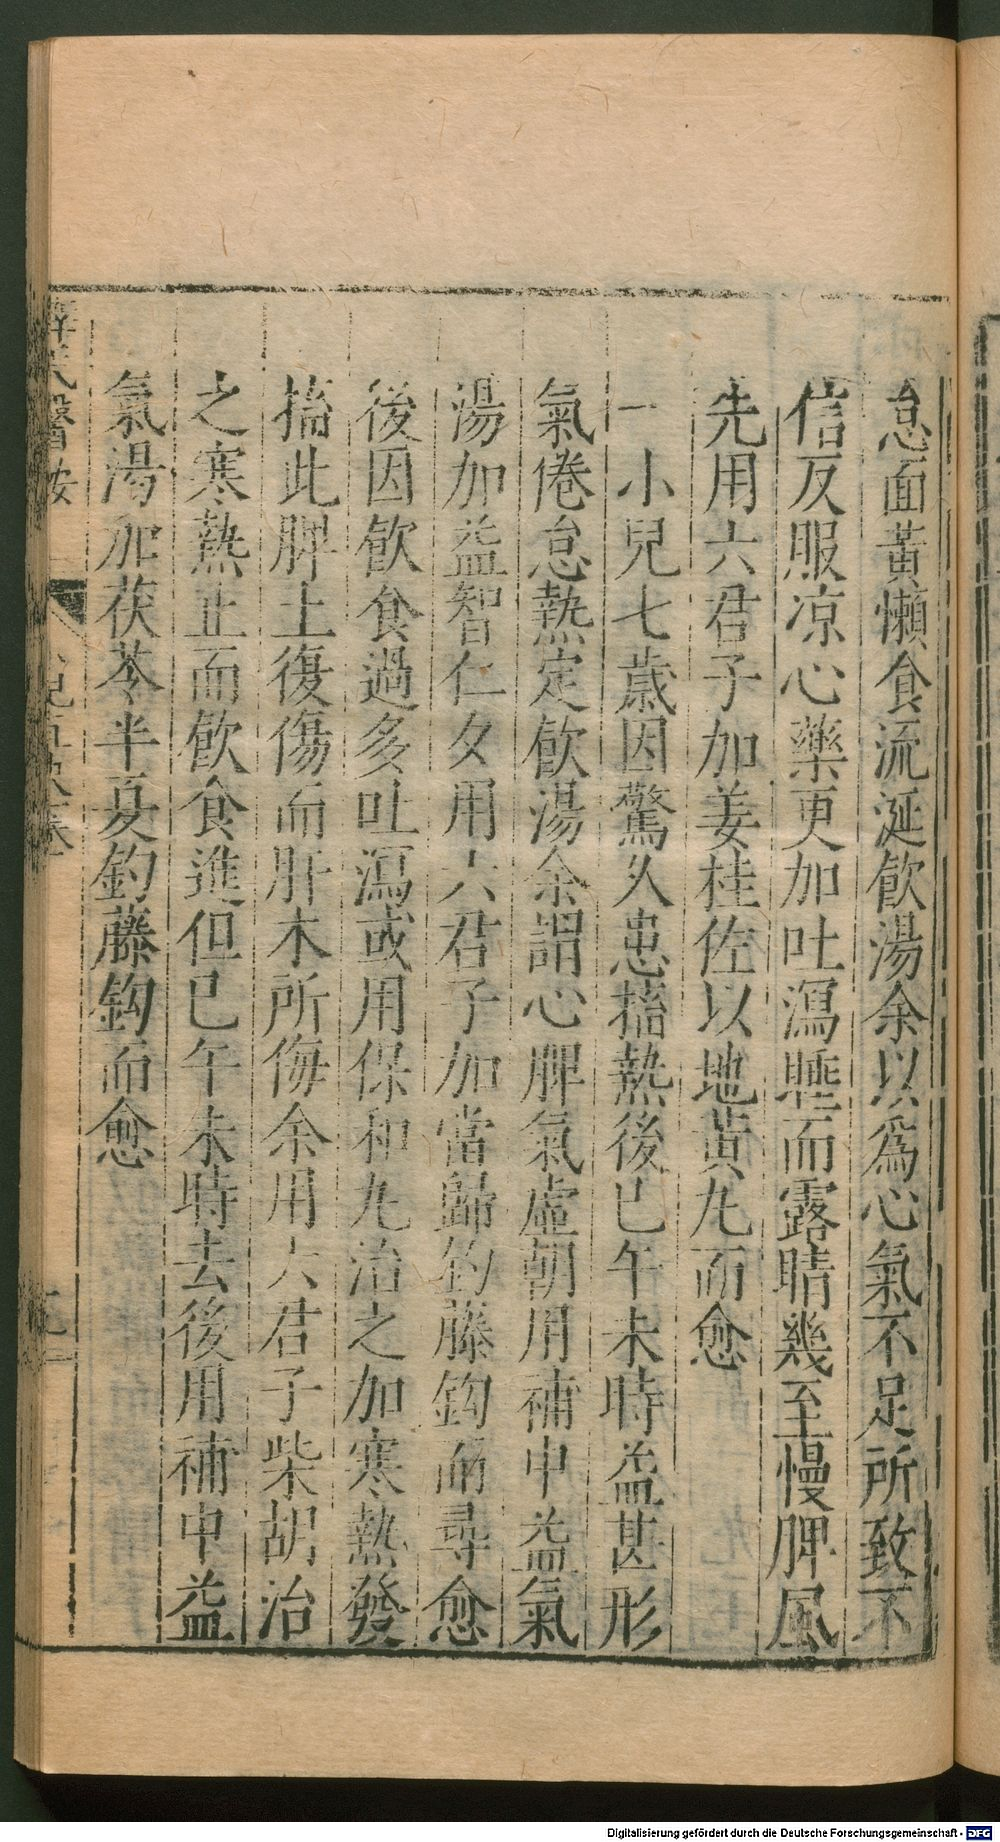 怠面黃懶食流涎飲湯余以為心氣不足所致不
信反服凉心藥更加吐瀉睡而露睛幾至慢脾風
先用六君子加姜桂佐以地黃丸而愈
一小兒七歲因驚久患搐熱後巳午未時益甚形
氣倦怠熱定飲湯余謂心脾氣虛朝用補中益氣
湯加益智仁夕用六君子加當歸釣藤鈎而尋愈
後因飲食過多吐瀉或用保和丸治之加寒熱發
搐此脾土復傷而肝木所侮余用六君子柴胡治
之寒熱止而飲食進但巳午未時去後用補中益
氣湯加茯苓半夏釣藤鈎而愈
薛氏醫按
Digitalisierung gefördert durch die Deutsche Forschungsgemeinschaft - DFG